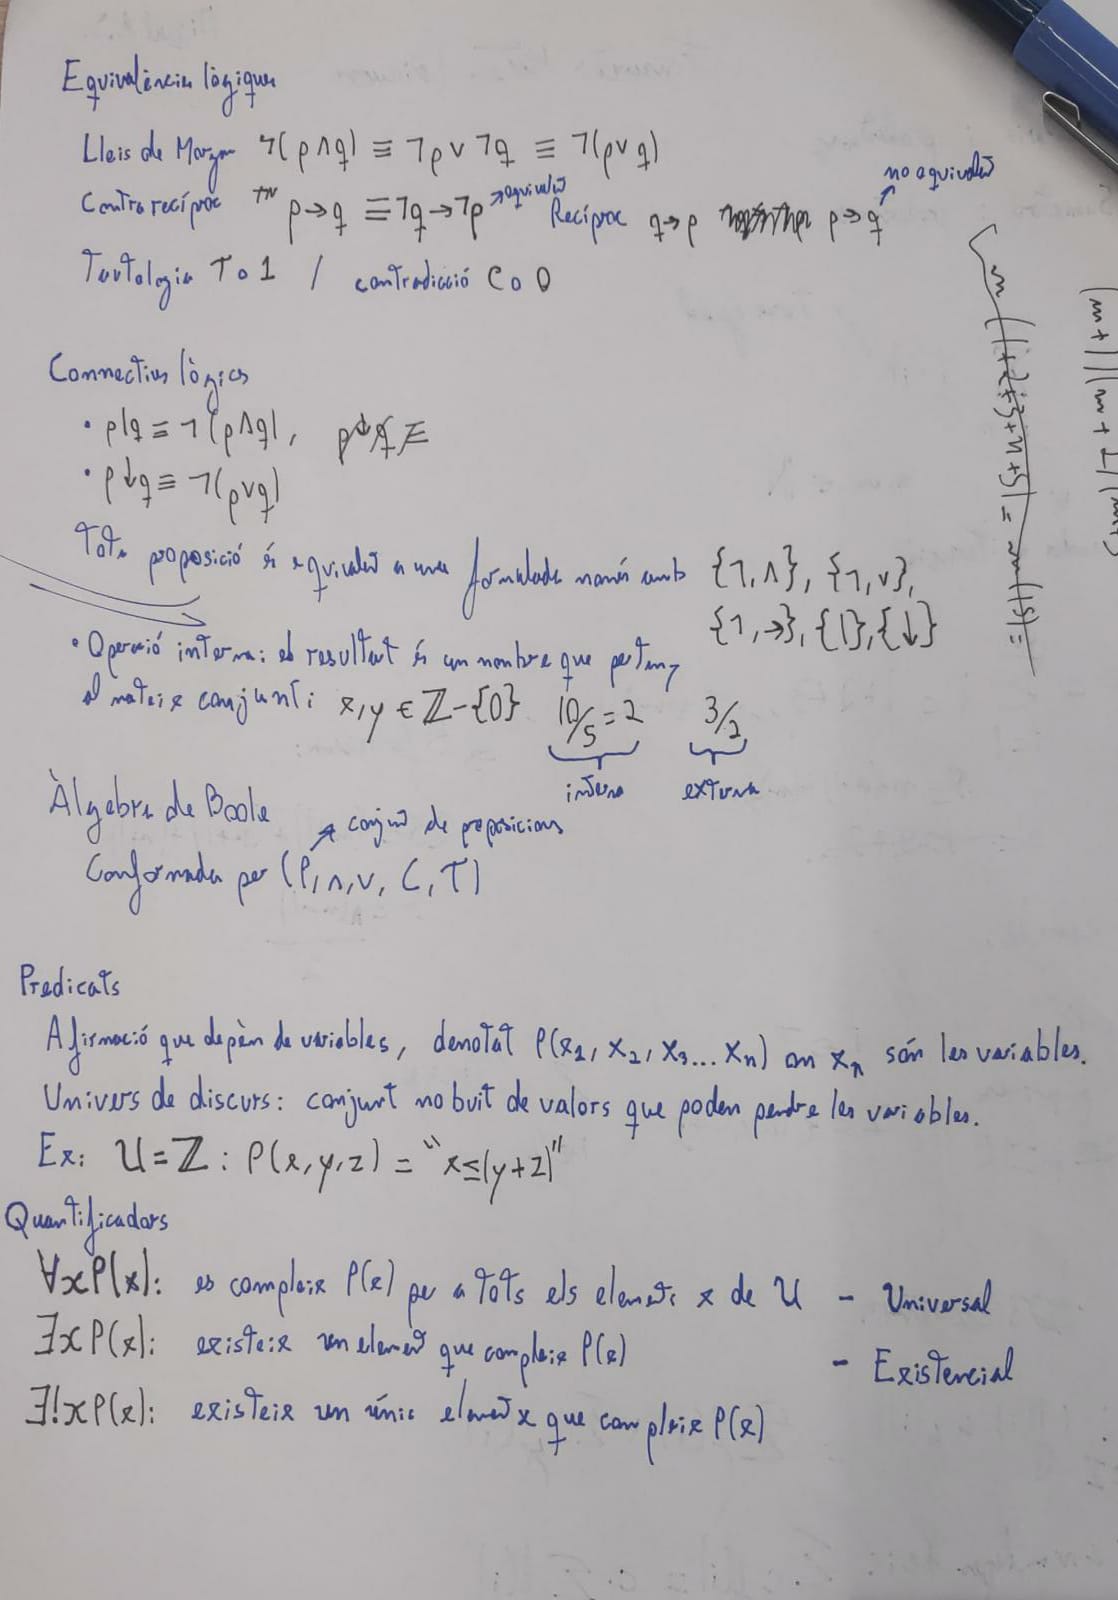 Equivalències lògiques
Lleis de Morgan ¬(p∧q) ≡ ¬p∨¬q ≡ ¬(p∨q)
Contrarecíproc p→q ≡ ¬q→¬p ↗equivalent Recíproc q→p p→q ↗ no equivalent
Tautologia T o 1 / contradicció C o 0
Connectius lògics
• p|q ≡ ¬(p∧q), p↓q ≡
• p↓q ≡ ¬(p∨q)
Tota proposició és equivalent a una formulada només amb {¬,∧}, {¬,∨},
{¬,→}, {|}, {↓}
• Operació interna: el resultat és un nombre que pertany
al mateix conjunt: x,y ∈ ℤ-{0} 10/5=2 3/2
interna externa
Àlgebra de Boole
↗ conjunt de proposicions
Conformada per (P,∧,∨, C, T)
Predicats
Afirmació que depèn de variables, denotat P(x₁, x₂, x₃... xₙ) on xₙ són les variables.
Univers de discurs: conjunt no buit de valors que poden pendre les variables.
Ex: U=ℤ: P(x,y,z) = "x≤(y+z)"
Quantificadors
∀xP(x): es compleix P(x) per a tots els elements x de U - Universal
∃xP(x): existeix un element que compleix P(x) - Existencial
∃!xP(x): existeix un únic element x que compleix P(x)